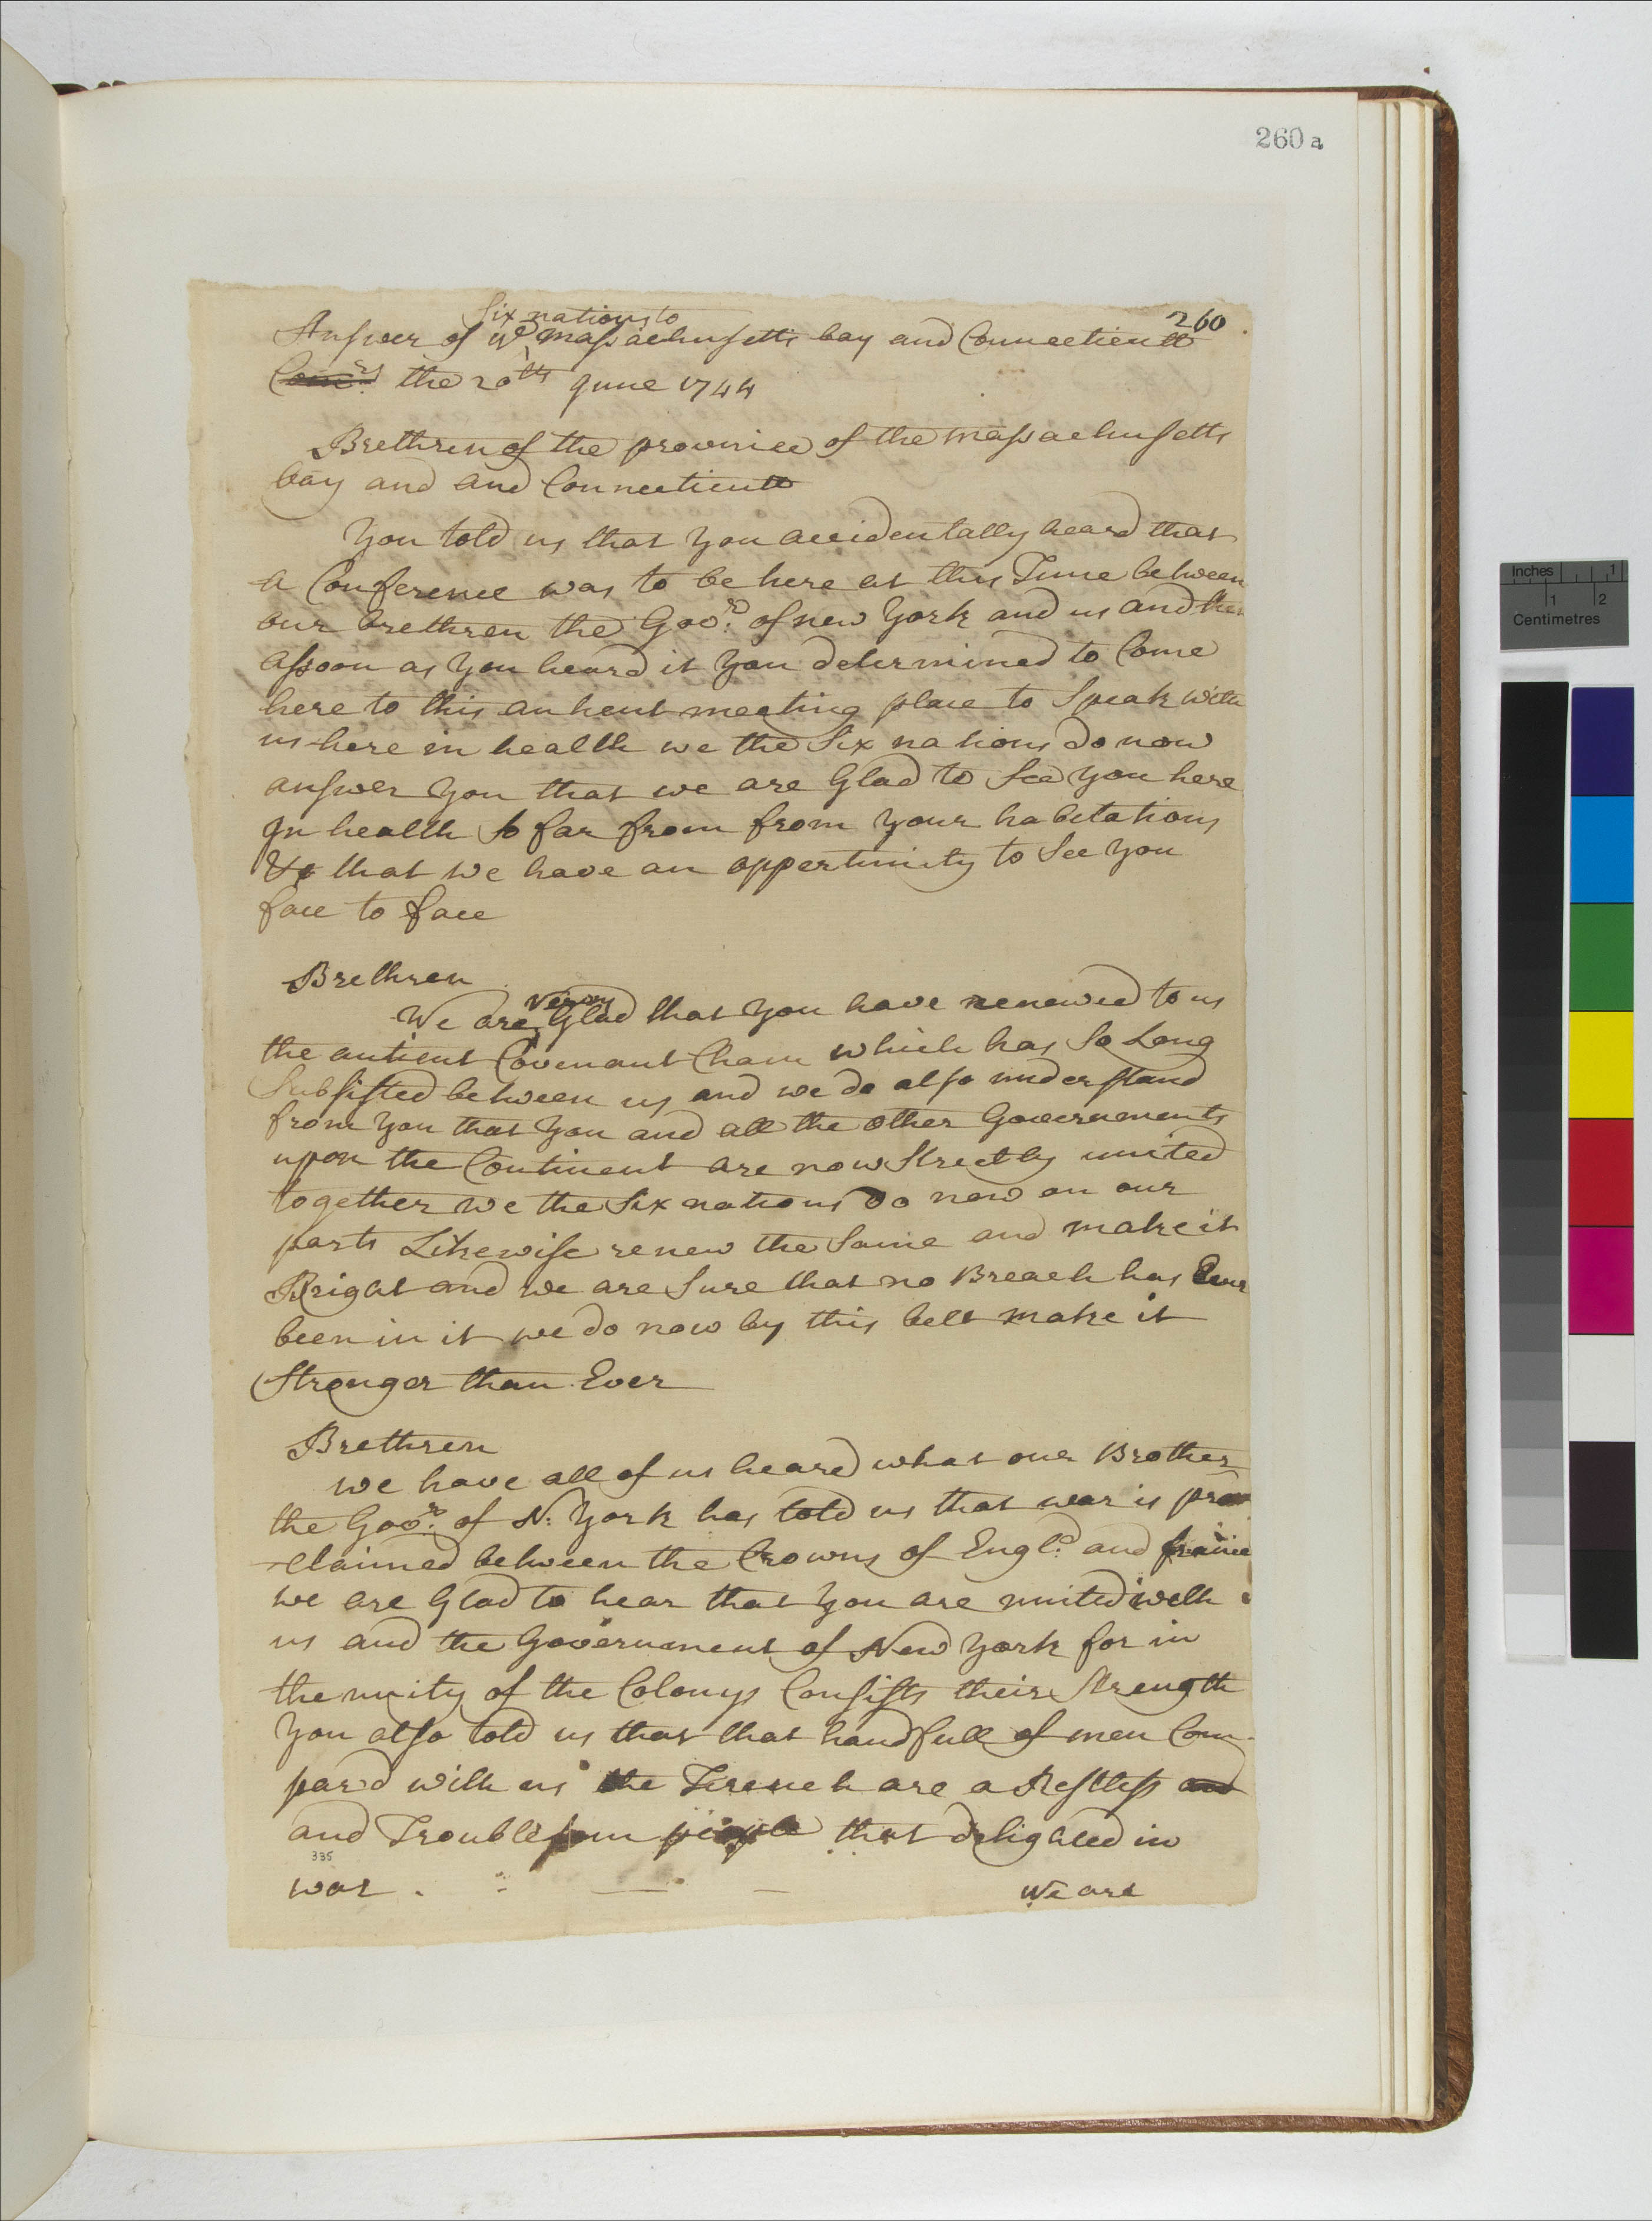 260 a
260
Six nations to
Answer of ye Massachusetts bay and Connecticutt
Comrs the 20th June 1744
Brethren of the province of the Massachusetts
bay and and Connecticutt
You told us that You accidentally heard that
a Conference was to be here at this Time between
our brethren the Govr. of new York and us and then
assoon as You heard it You determined to Come
here to this antient meeting place to Speak with
us here in health we the Six nations do now
answer You that we are Glad to See You here
In health So far from from Your habitations
& that we have an oppertunity to See You
face to face
Brethren
verry
We are Glad that You have renewed to us
the antient Covenant Chain which has So Long
Subsisted between us and we do also understand
from You that You and all the other Governments
upon the Continent are now Strectly united
together we the Six nations do now on our
parts Likewise renew the Same and make it
Bright and we are Sure that no Breach has Ever
been in it we do now by this belt make it
Stronger than Ever
Brethren
we have all of us heared what our Brother
the Govr. of N: York has told us that war is pro
claimed between the Crowns of Engld. and france
we are Glad to hear that You are united with
us and the Government of New York for in
the unity of the Colonys Consists their Strength
You also told us that that handfull of men Com-
par'd with us the French are a Restless and
and Troublesom people that delighted in
335
war.
We are